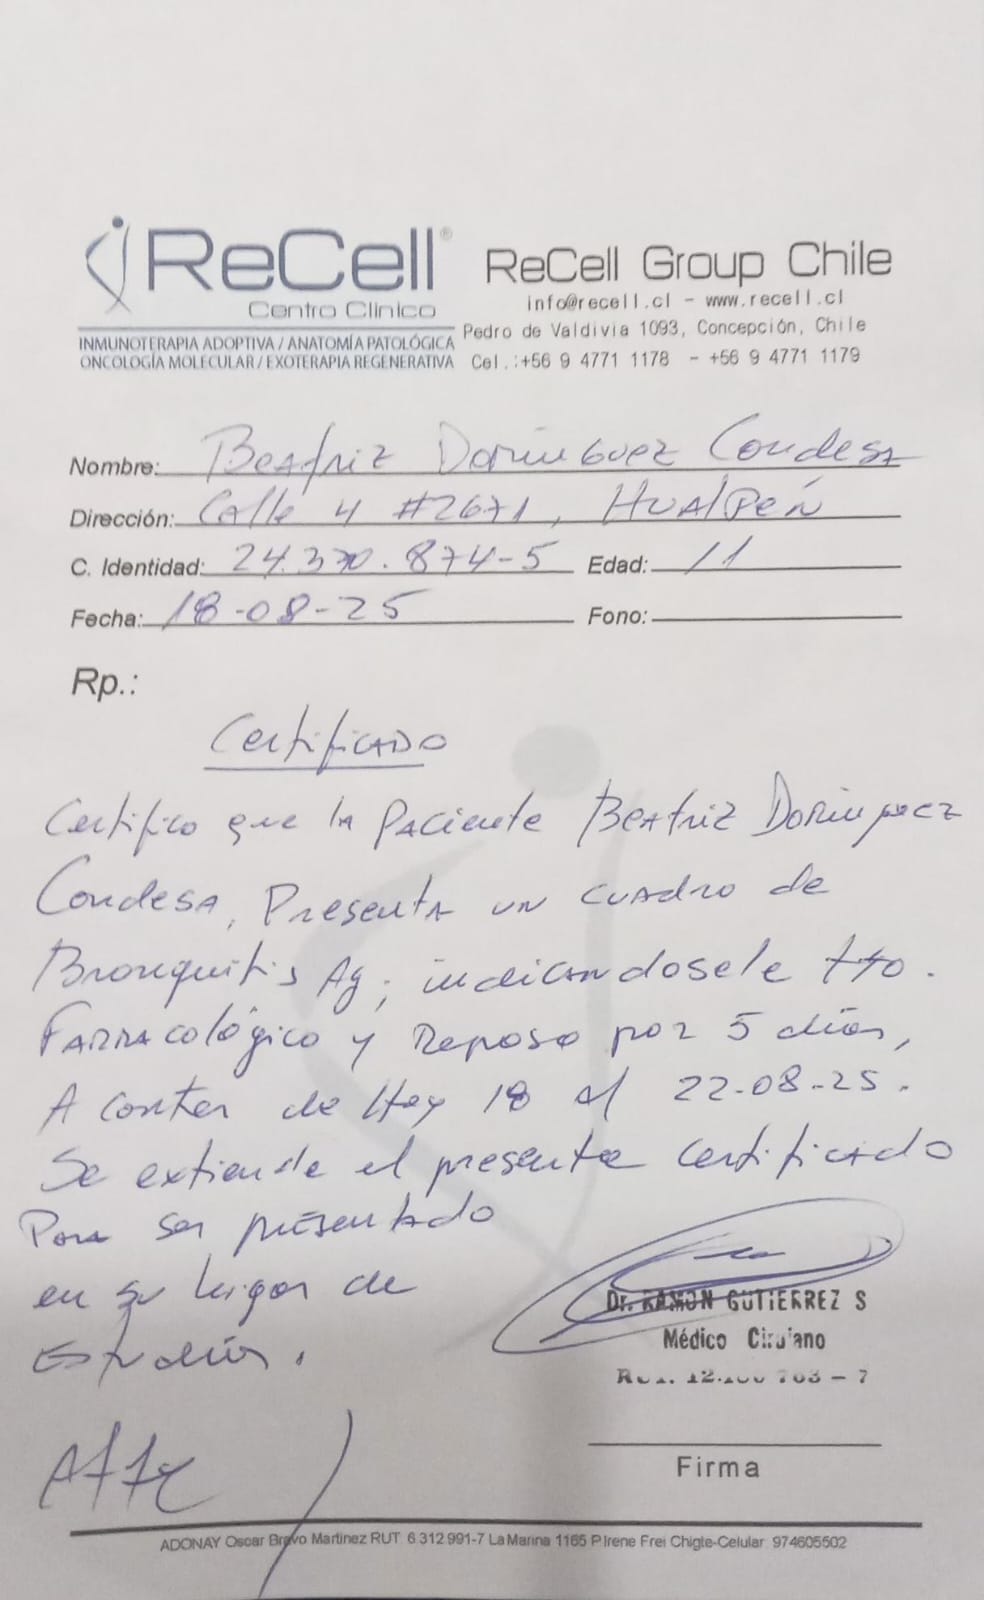 ReCell®
Centro Clinico
INMUNOTERAPIA ADOPTIVA / ANATOMÍA PATOLÓGICA
ONCOLOGÍA MOLECULAR / EXOTERAPIA REGENERATIVA
ReCell Group Chile
info@recell.cl - www.recell.cl
Pedro de Valdivia 1093, Concepción, Chile
Cel.:+56 9 4771 1178 - +56 9 4771 1179
Nombre: Beatriz Dominguez Condesa
Dirección: Calle 4 #2671, Hualpén
C. Identidad: 24.370.874-5 Edad: 11
Fecha: 18-08-25 Fono:
Rp.:
Certificado
Certifico que la Paciente Beatriz Dominguez
Condesa, Presenta un cuadro de
Bronquitis Ag; indicandosele tto.
Farmacológico y Reposo por 5 días,
A contar de Hoy 18 al 22-08-25.
Se extiende el presente certificado
Para ser presentado
en su lugar de
Estudios.
Dr. RAMON GUTIERREZ S
Médico Cirujano
Firma
ADONAY Oscar Bravo Martinez RUT 6 312 991-7 La Marina 1165 P Irene Frei Chigte-Celular 974605502